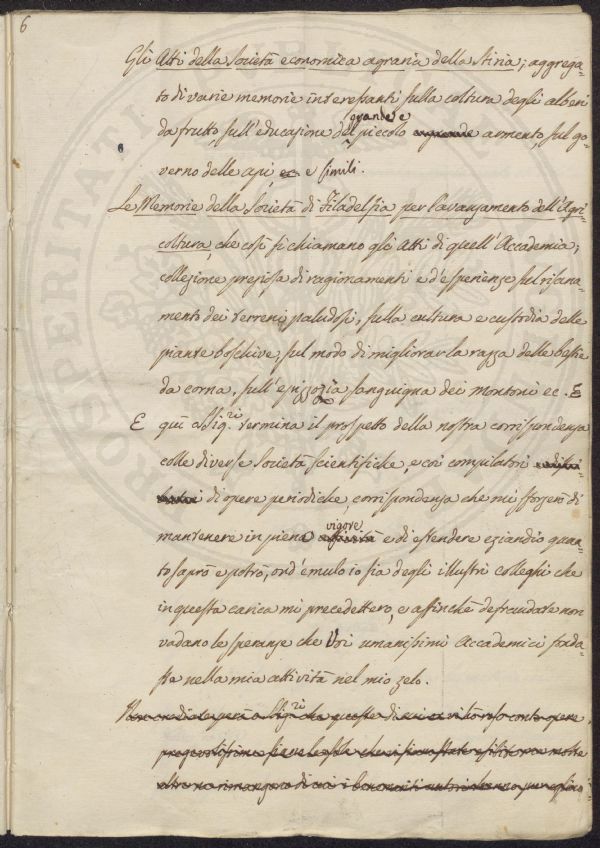 6
Gli Atti della Società economica agraria della Stiria; aggrega-
to di varie memorie interessanti sulla coltura degli alberi
da frutto, sull'educazione del grande e piccolo armento, sul go-
verno delle api ec e simili.
Le Memorie della Società di Filadelfia per l'avanzamento dell'Agri-
coltura, che così si chiamano gli Atti di quell'Accademia;
collezione preziosa di ragionamenti e d'esperienze sul risana-
mento dei terreni paludosi, sulla cultura e custodia delle
piante boschive, sul modo di migliorar la razza delle bestie
da corna, sull'epizozia sanguigna dei montoni ec. E
E qui o Sig.ri termina il prospetto della nostra corrispondenza
colle diverse Società scientifiche, e coi compilatori
di opere periodiche, corrispondenza che mi sforzerò di
mantenere in piena attività vigore e di estendere eziandio quan-
to saprò e potrò, ond'emulo io sia degli illustri colleghi che
in questa carica mi precedettero, e affinchè defraudate non
vadano le speranze che Voi umanissimi Accademici fonda-
ste nella mia attività nel mio zelo.